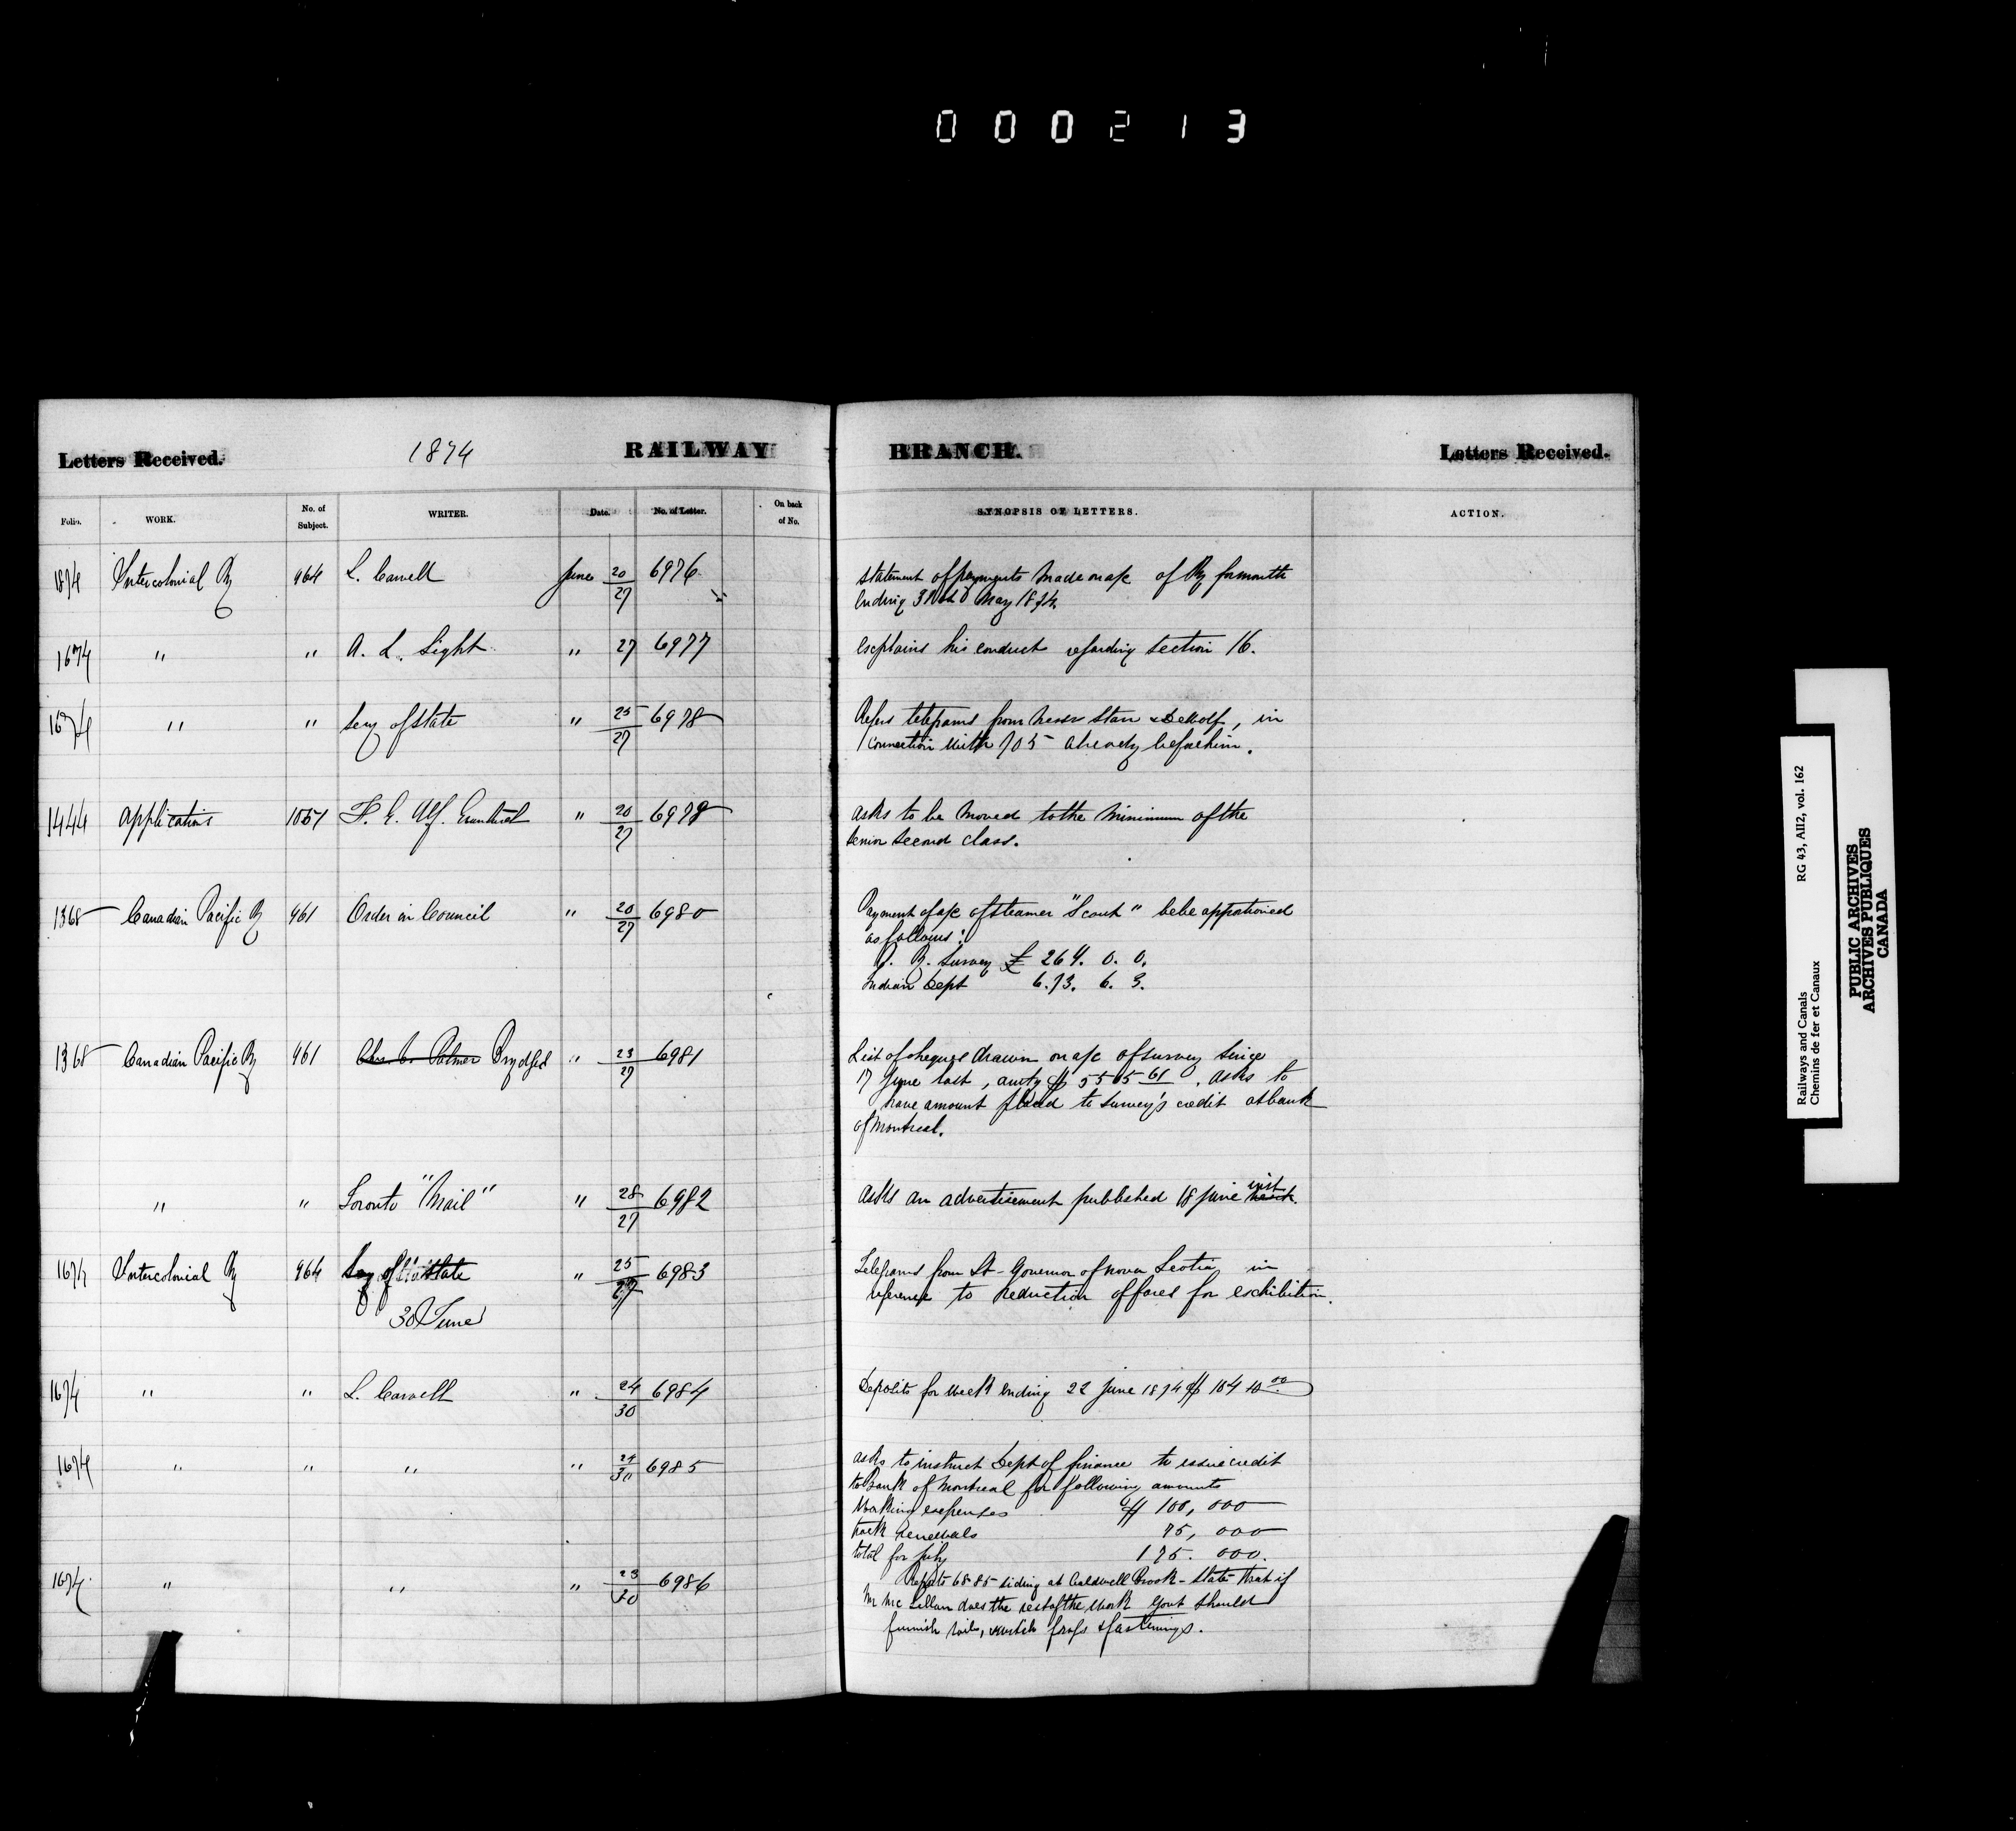 000213
Letters Received. 1874 RAILWAY BRANCH. Letters Received.
Folio. WORK. No. of Subject. WRITER. Date. No. of Letter. On back of No. SYNOPSIS OF LETTERS. ACTION.
1874 Intercolonial Ry 464 L. Carvell June 20/27 6976 Statement of payments made on a/c of Ry for month
ending 31st May 1874.
1674 " " A. L. Light " 27 6977 Explains his conduct regarding Section 16.
1674 " " Secy of State " 25/27 6978 Refers telegrams from Messrs Starr & DeWolf, in
connection with 705 already before him.
1444 Applications 1051 F. E. Alf. " 20/27 6978 Asks to be moved to the minimum of the
senior second class.
1368 Canadian Pacific Ry 461 Order in Council " 20/27 6980 Payment of a/c of steamer "Scout" be be apportioned
as follows:
P. R. Survey £ 264. 0. 0.
Indian Dept 6.73. 6. 3.
1368 Canadian Pacific Ry 461 Chs. C. Palmer Brydges " 23/27 6981 List of cheques drawn on a/c of survey since
17 June last, amtg $ 5565 61. Asks to
have amount placed to survey's credit at bank
of Montreal.
" " Toronto "Mail" " 28/27 6982 Asks an advertisement published 18 June inst
1674 Intercolonial Ry 464 Secy of State " 25/27 6983 Telegrams from Lt-Governor of Nova Scotia in
reference to reduction of fares for exhibition.
30 June
1674 " " L. Carvell " 24/30 6984 Deposits for week ending 22 June 1874 $ 104 10 00
1674 " " " " 24/30 6985 Asks to instruct Dept of finance to issue credit
to Bank of Montreal for following amounts
Working expenses $ 100,000
track renewals 75,000
total for July 175.000.
1674 " " " 23/30 6986 Refers to 6885 siding at Caldwell Brook - States that if
Mr McLellan does the rest of the work Govt should
furnish rails, switch frogs & fastenings.
Railways and Canals RG 43, AII2, vol. 162
Chemins de fer et Canaux
PUBLIC ARCHIVES
ARCHIVES PUBLIQUES
CANADA